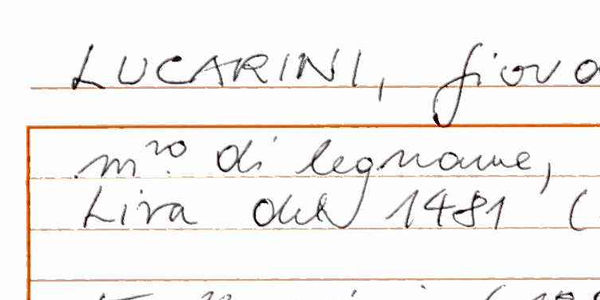 LUCARINI, Giova
m.ro di legname,
Lira del 1481 (